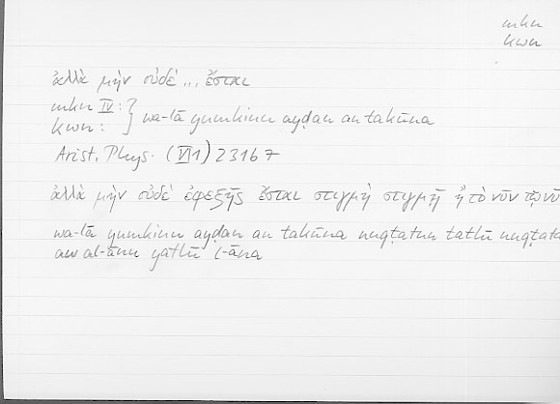 mkn
kwn
ἀλλὰ μὴν οὐδὲ ... ἔσται
mkn IV : }
kwn : } wa-lā yumkinu ayḍan an takūna
Arist. Phys. (VI 1) 231b7
ἀλλὰ μὴν οὐδὲ ἐφεξῆς ἔσται στιγμὴ στιγμῇ ἢ τὸ νῦν τῷ νῦ
wa-lā yumkinu ayḍan an takūna nuqṭatun tatlū nuqṭata
aw al-ānu yatlū l-āna